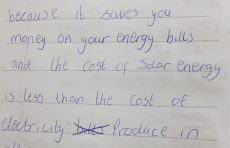 because it saves you
money on your energy bills
and the cost of Solar energy
is less than the cost of
electricity Produce in